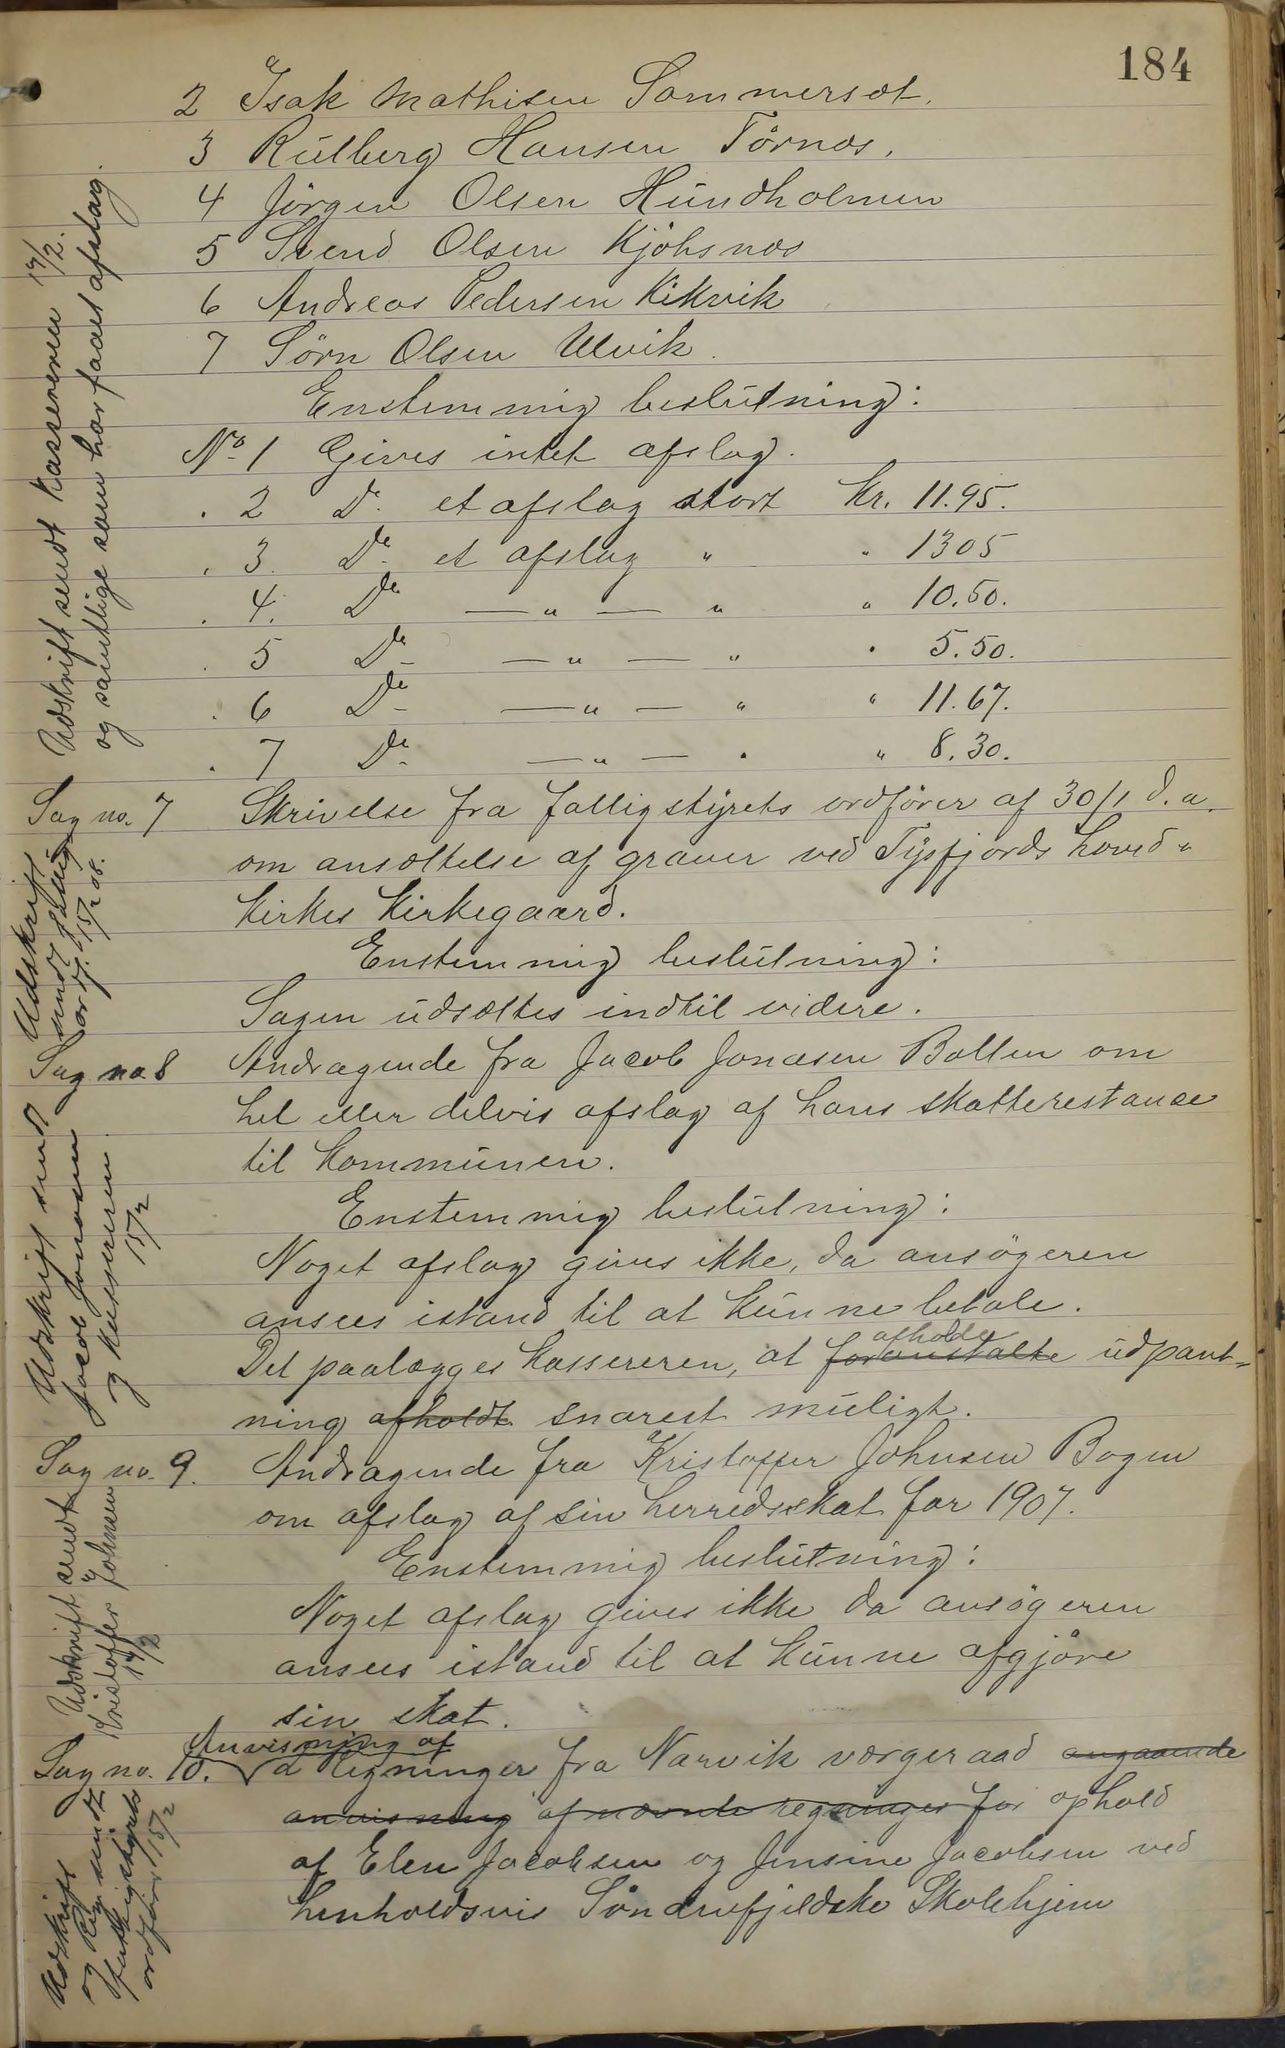 184
2 Isak Mathisen Sommerset.
3 Rulberg Hansen Tørnæs,
4 Jörgen Olsen Hundholmen
5 Svend Olsen Kjöbsnæs
6 Andreas Pedersen Kikvik
7 Sörn Olsen Ulvik.
Enstemmig beslutning:
No 1 Gives intet afslag.
" 2 Do. et afslag stort Kr. 11.95.
" 3. Do. et afslag " " 1305
" 4. Do — " — " " 10.50.
" 5 Do — " — " " 5.50.
" 6 Do — " — " " 11.67.
" 7 Do. — " — " " 8.30.
Udskrift sendt kassereren 17/2.
og samtlige som har faaet afslag.
Sag no. 7 Skrivelse fra fattigstyrets ordförer af 30/1 d.a.
om ansættelse af graver ved Tysfjords hoved-
kirkes kirkegaard.
Enstemmig beslutning:
Sagen udsættes indtil videre.
Udskrift
sendt fattig
ordf. 15/2 08.
Sag no 8 Andragende fra Jacob Jonasen Botten om
hel eller delvis afslag af hans skatterestance
til kommunen.
Enstemmig beslutning:
Noget afslag gives ikke, da ansögeren
ansees istand til at kunne betale.
Det paalægges kassereren, at foranstalte afholde udpant-
ning afholdt snarest muligt.
Udskrift sendt
Jacob Jonasen
og kassereren
15/2
Sag no. 9. Andragende fra Kristoffer Johnsen Bogen
om afslag af sin herredsskat for 1907.
Enstemmig beslutning:
Noget afslag gives ikke da ansögeren
ansees istand til at kunne afgjöre
sin skat.
Udskrift sendt
Kristoffer Johnsen
17/2
Anvisning af
Sag no. 10. 2 regninger fra Narvik værgeraad angaaende
anvisning af nævnte regninger for ophold
af Elen Jacobsen og Jensine Jacobsen ved
henholdsvis Söndenfjeldske Skolehjem
Udskrift
og Regn sendt
fattigstyrets
ordförer 15/2